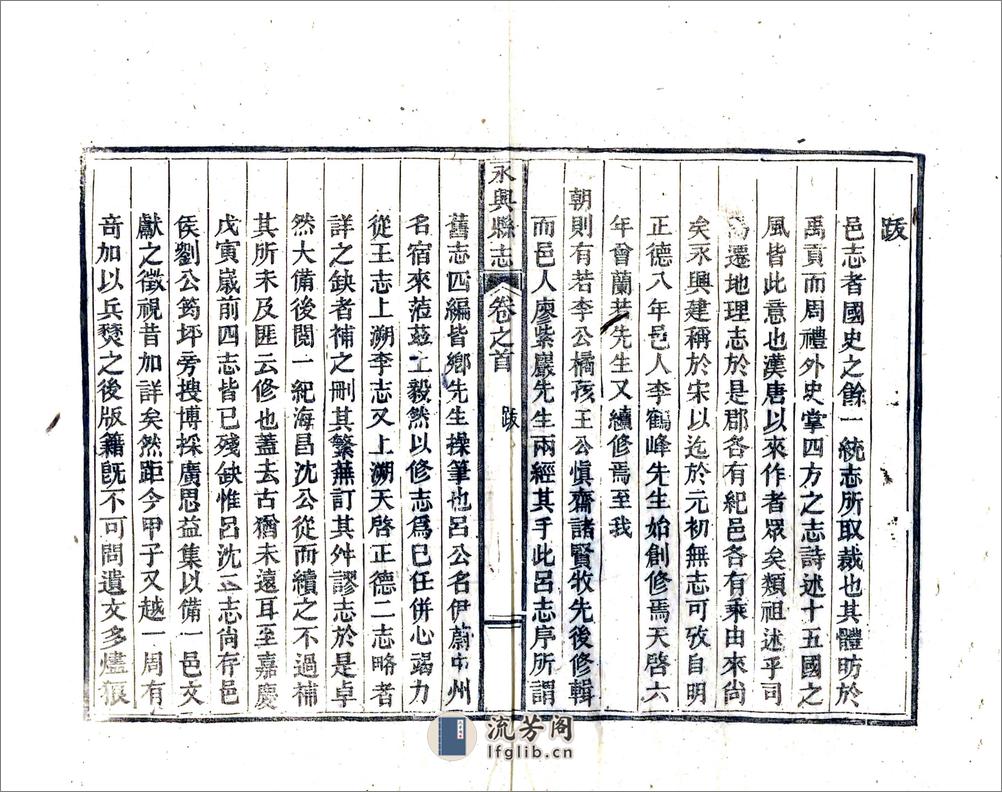 跋
邑志者國史之餘一統志所取裁也其體昉於
禹貢而周禮外史掌四方之志詩述十五國之
風皆此意也漢唐以來作者眾矣類祖述乎司
馬遷地理志於是郡各有紀邑各有乘由來尙
矣永興建稱於宋以迄於元初無志可攷自明
正德八年邑人李鶴峰先生始創修焉天啓六
年曾蘭若先生又續修焉至我
朝則有若李公橘孩王公愼齋諸賢牧先後修輯
而邑人廖紫巖先生兩經其手此呂志序所謂
永興縣志 卷之首 跋
舊志四編皆鄉先生操筆也呂公名伊蔚中州
名宿來蒞茲土毅然以修志爲巳任併心竭力
從王志上溯李志又上溯天啓正德二志略者
詳之缺者補之刪其繁蕪訂其舛謬志於是卓
然大備後閱一紀海昌沈公從而續之不過補
其所未及匪云修也蓋去古猶未遠耳至嘉慶
戊寅嵗前四志皆已殘缺惟呂沈二志尙存邑
侯劉公筠坪旁搜博採廣思益集以備一邑文
獻之徵視昔加詳矣然距今甲子又越一周有
奇加以兵燹之後版籍旣不可問遺文多燼狼
流芳阁
lfglib.cn